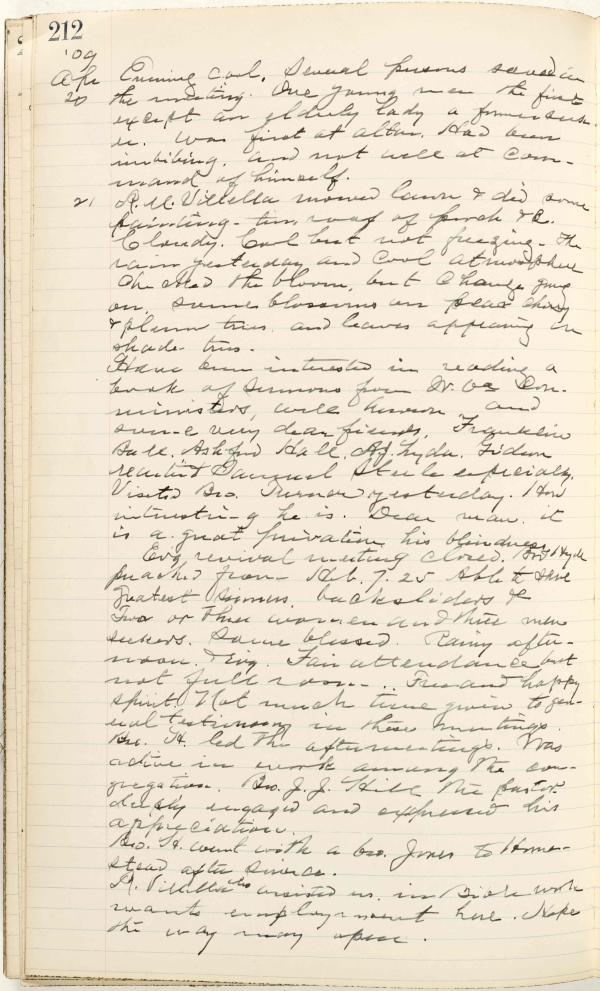 212
'09
Apr Evening cool. Several persons saved in
20 the meeting. One young man the first
except an elderly lady a former seek-
er. Was first at altar. Had been
imbibing. and not well at com-
mand of himself.
21 R. M. Villella mowed lawn & did some
painting - tin roof of porch &c.
Cloudy. Cool but not freezing - The
rain yesterday and cool atmosphere
checked the bloom, but change going
on. some blossoms on pear cherry
& plum trees and leaves appearing on
shade trees.
Have been interested in reading a
book of sermons from W. Va Con-
ministers, well known and
some very dear friends. Franklin
Ball. Ashford Hall. Lyda. Gideon
Samuel Steele especially.
Visited Bro. Turner yesterday. How
interesting he is. Dear man. it
is a great privation his blindness
Evg revival meeting closed. Bro Hyde
preached from - Heb. 7.25 Able to save
greatest sinners, backsliders &
Two or three women and three men
seekers. Some blessed. Rainy after-
noon. & Evg. Fair attendance but
not full room - .. Free and happy
spirit. Not much time given to gen-
eral testimony in these meetings.
Bro. H. led the aftermeetings. Was
active in work among the con-
gregation. Bro. J. J. Hill the pastor.
deeply engaged and expressed his
appreciation.
Bro. H. went with a bro. Jones to Home-
stead after service.
R. Villella has assisted us. in Bible work
wants employment here. Hope
the way may open.